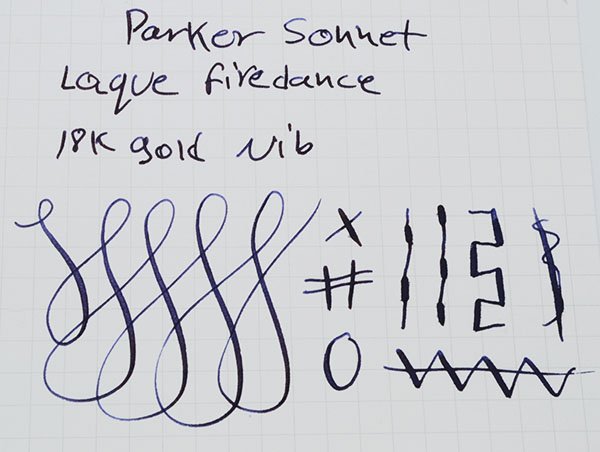 Parker Sonnet
Laque firedance
18K gold nib
X
#
0